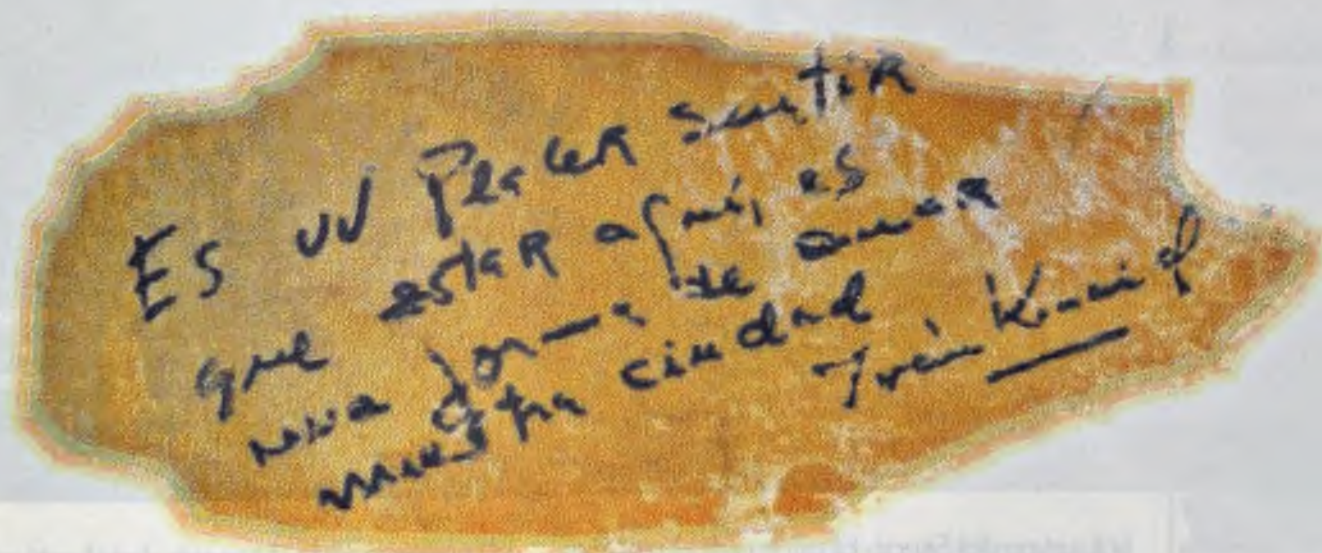 Es uN PlaceR SentiR
que estaR aquí, es
una forma de amaR
nuestra ciudad